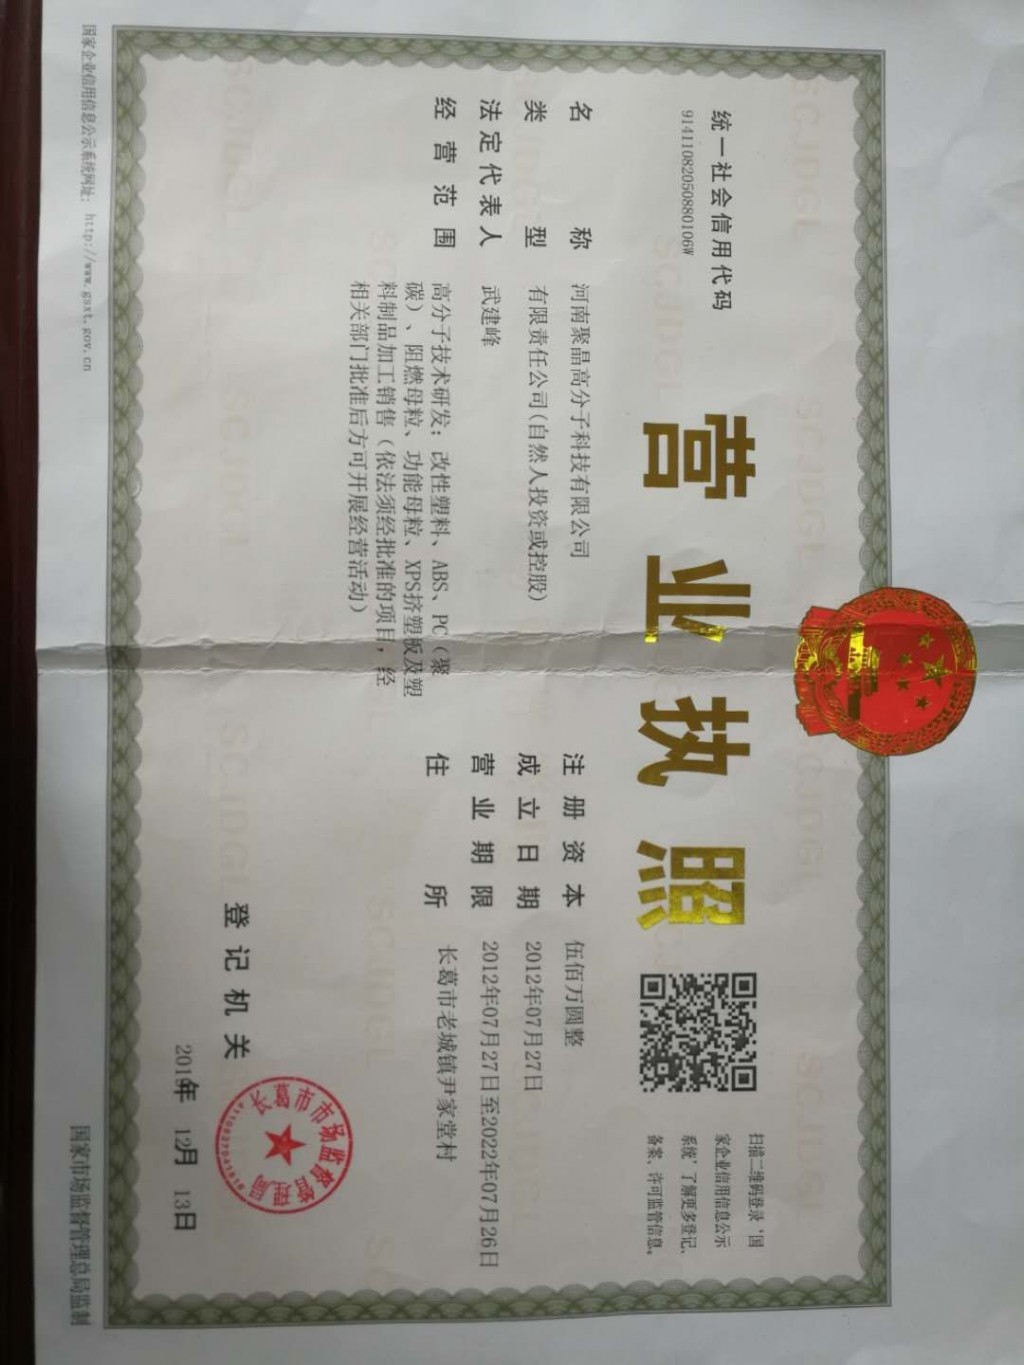 统一社会信用代码
91411082050880106W
营业执照
扫描二维码登录‘国
家企业信用信息公示
系统’了解更多登记、
备案、许可监管信息。
名称 河南聚晶高分子科技有限公司
类型 有限责任公司(自然人投资或控股)
法定代表人 武建峰
经营范围 高分子技术研发；改性塑料、ABS、PC（聚
碳）、阻燃母粒、功能母粒、XPS挤塑板及塑
料制品加工销售（依法须经批准的项目，经
相关部门批准后方可开展经营活动）
注册资本 伍佰万圆整
成立日期 2012年07月27日
营业期限 2012年07月27日至2022年07月26日
住所 长葛市老城镇尹家堂村
登记机关
长葛市市场监督管理局
年 12月 13日
国家企业信用信息公示系统网址：http://www.gsxt.gov.cn
国家市场监督管理总局监制
SCJDGL